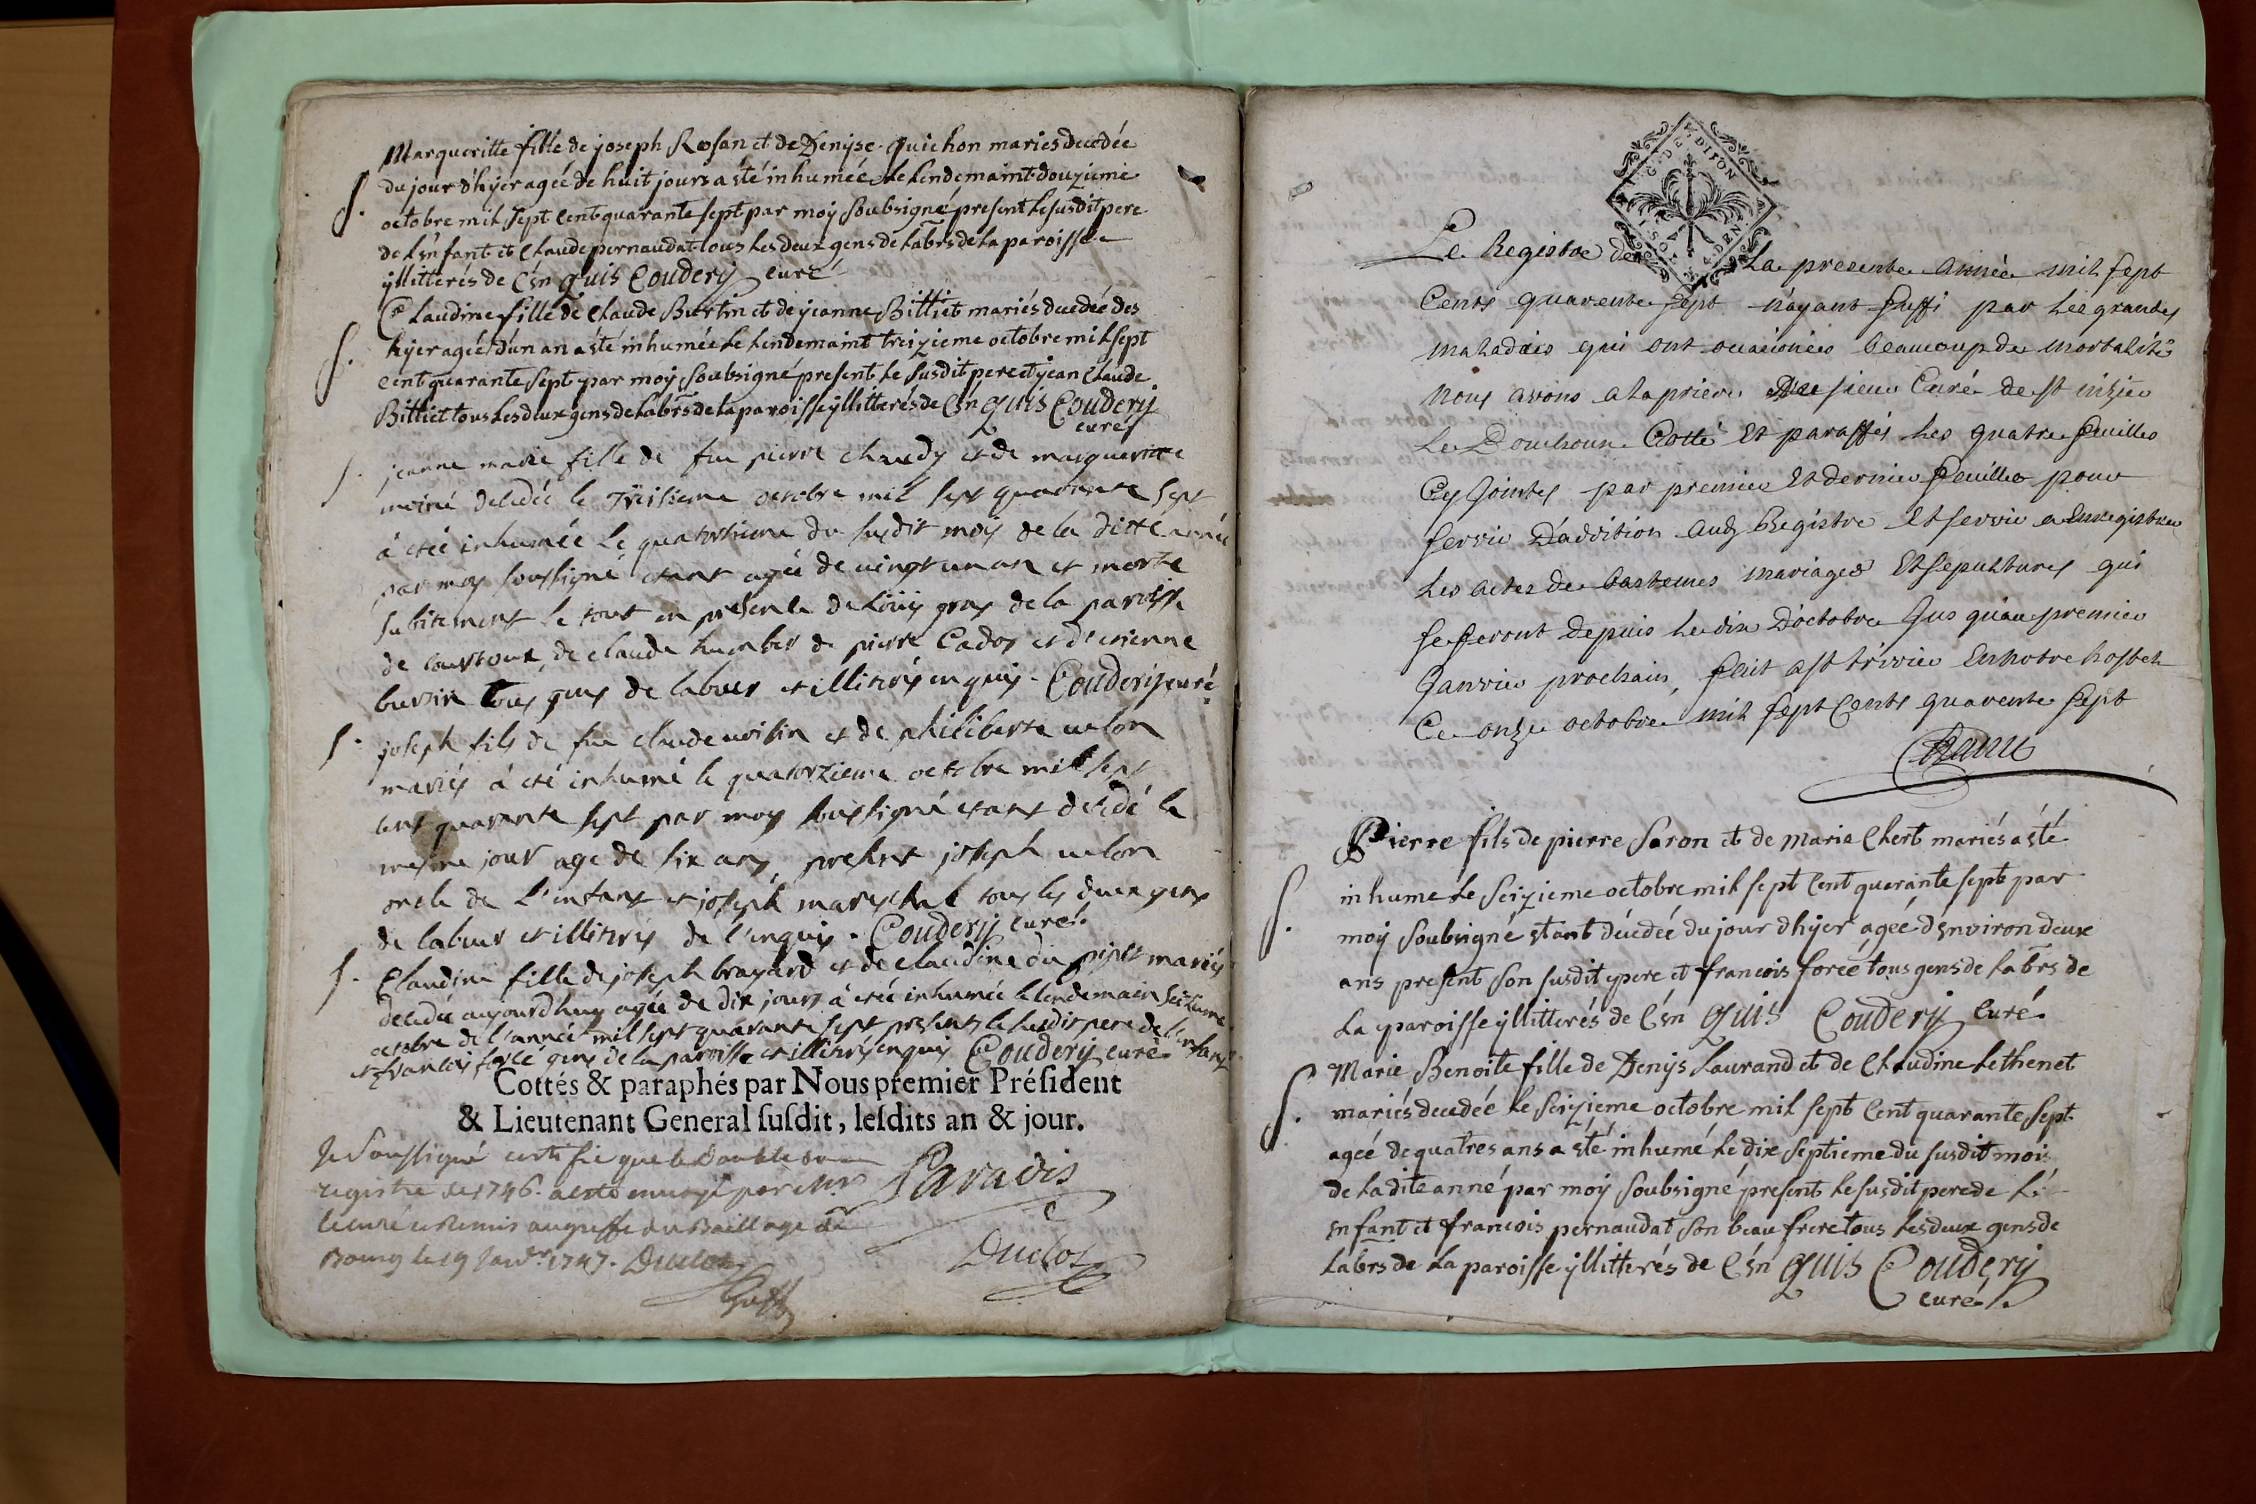 Marqueritte fille de joseph Rosan et de Denÿse quichon mariés decedée
du jour d'hÿer agée de huit jours a été inhumée le lendemaint douzieme
octobre mil sept cent quarante sept par moÿ soubsigné present le susdit pere
de l'enfant et Claude pernaudat tous les deux gens de labrs de la paroisse
ÿllitterés de Cën quis Couderÿ curé
Claudine fille de Claude Burtin et de jeanne Billiet mariés decedée des
hÿer agée d'un an a été inhumée le lendemaint treizieme octobre mil sept
cent quarante sept par moÿ soubsigné present le susdit pere et jean Claude
Billiet tous les deux gens de labrs de la paroisse ÿllitterés de Cën quis Couderÿ
curé
jeanne marie fille de feu pierre chaudy et de marguerite
decedée le Treisieme octobre mil sept quarante sept
à eté inhumée le quatorsieme du susdit moy de la ditte année
par moy soussigné etant agée de vingt un an et morte
subitement le tout en présence de Loüis gros de la paroisse
de de claude humber de pierre Cadoz et d'etienne
burtin tous gens de labeur et illitirés enquis. Couderÿ curé
joseph fils de feu claude voisin et de philiberte velon
mariés à eté inhumé le quatorzieme octobre mil sept
cent quarante sept par moy soussigné etant decedé le
mesme jour age de six ans, present joseph velon
oncle de l'enfant et joseph mareschal tous les deux gens
de labeur et illitirés de l'enquis. Couderÿ curé.
Claudine fille de joseph brayard et de claudine du mariés
decedée aujourdhuy agée de dix jours à eté inhumée le lendemain seizieme
octobre de l'année mil sept quarante sept presents le susdit pere de l'enfant
et francois forcé gens de la paroisse et illitirés enquis Couderÿ curé
Cottés & paraphés par Nous premier Préſident
& Lieutenant General ſuſdit, leſdits an & jour.
Je soussigné certifie que le double du
registre de 1746. a esté envoyé par Mr
le curé et Remis au greffe du Baillage de
Bourg le 19 janvr 1747. Duclos
Paradis
Duclos
G. DE DIJON
Le Registre de la presente année mil sept
Cents quarente sept n'ayant suffi par les grandes
maladies qui ont occasionées beaucoup de mortalités
nous avons a la priere du sieur Curé de st
le Bouchoux Cotté et paraffés les quatre feuilles
Cy jointes par premier et dernier feuillet pour
servir d'addition audt Registre et servir a Enregistrer
les actes de bastemes mariages et sepultures qui
se feront depuis le dix d'octobre jus qu'au premier
janvier prochain, fait a st trivier En notre hostel
Ce onze octobre mil sept Cents quarente sept
Pierre fils de pierre Saron et de Marie Chert mariés a été
inhume le seizieme octobre mil sept cent quarante sept par
moÿ soubsigné etant décedée du jour d'hÿer agée d'environ deux
ans present son susdit ÿpere et francois forcé tous gens de labrs de
la ÿparoisse ÿllitterés de Cën quis Couderÿ Curé.
Marie Benoite fille de Denÿs Laurand et de Claudine Lethenet
mariés decedée le seizieme octobre mil sept cent quarante sept
agée de quatres ans a été inhumé le dixe septieme du susdit mois
de la dite anné par moÿ soubsigné present le susdit pere de l'é
enfant et francois pernaudat son beau frere tous les deux gens de
labrs de la paroisse ÿllitterés de Cën quis Couderÿ
curé